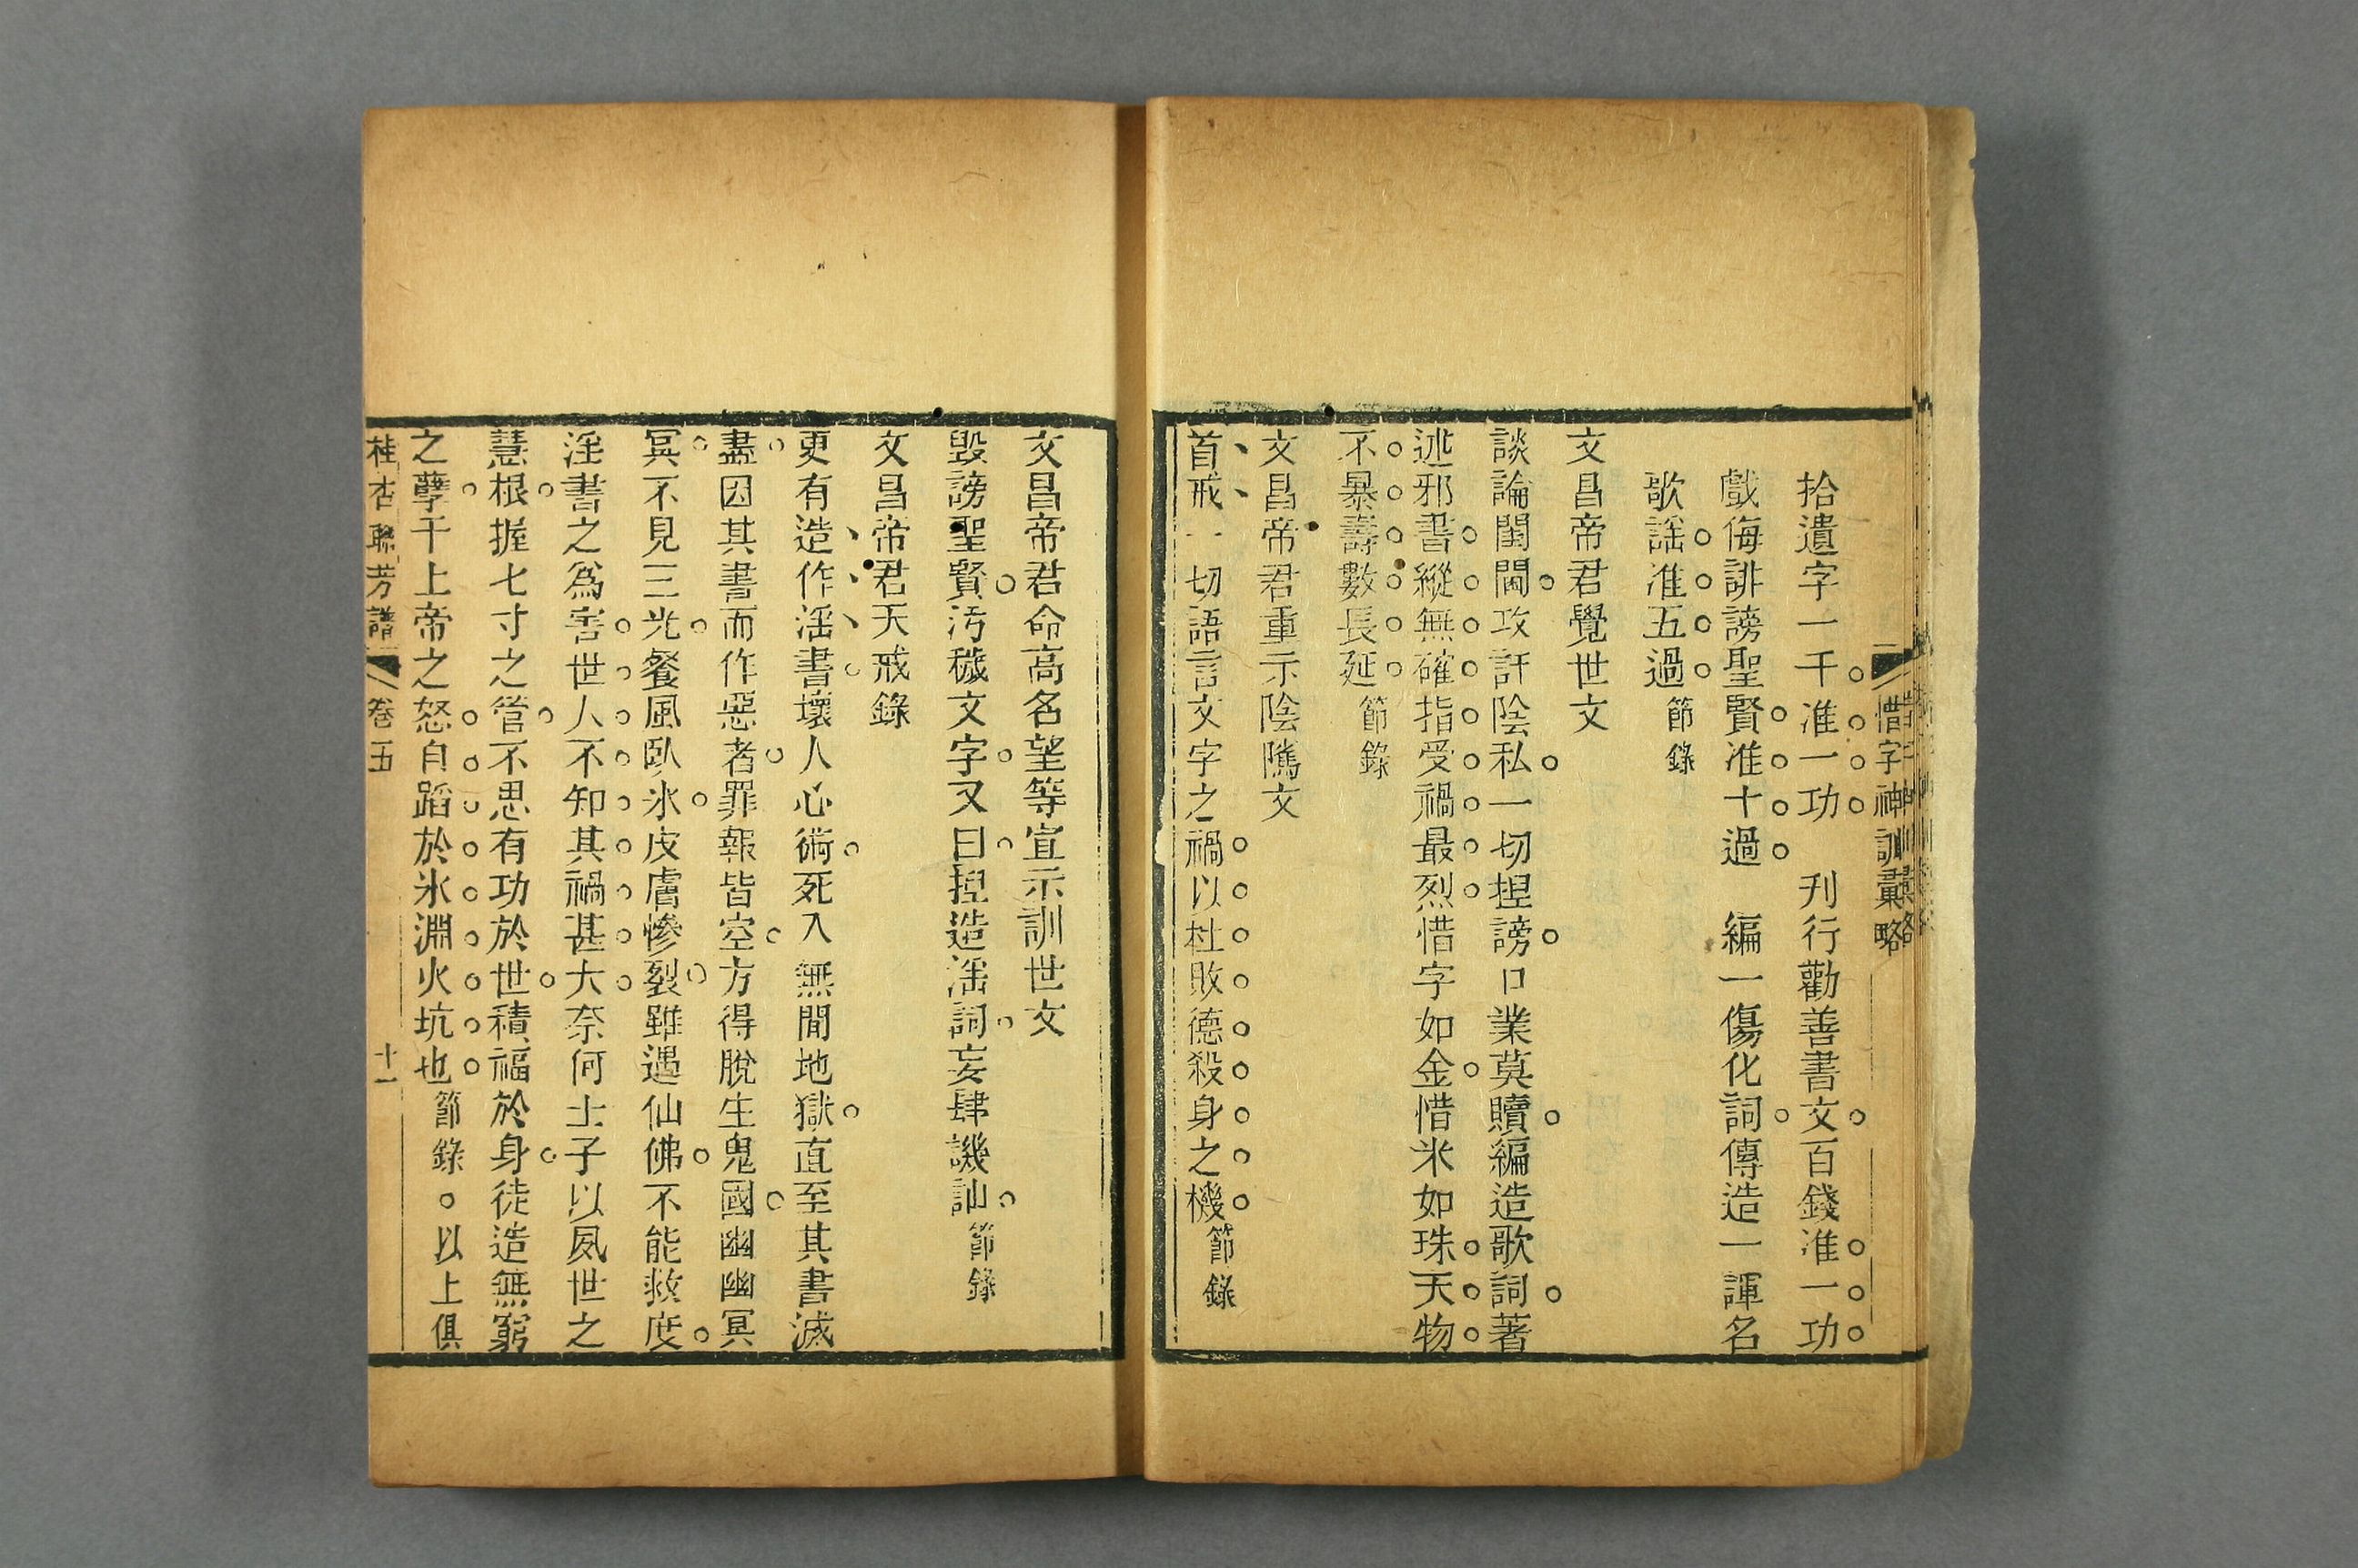 惜字神訓彙略
拾遺字一千准一功　刋行勸善書文百錢准一功
戲侮誹謗聖賢准十過　編一傷化詞傳造一諢名
歌謡准五過節錄
文昌帝君覺世文
談論閨閫攻訐陰私一切揑謗口業莫贖編造歌詞著
述邪書縱無確指受禍最烈惜字如金惜米如珠天物
不暴壽數長延節錄
文昌帝君重示陰隲文
首戒一切語言文字之禍以杜敗德殺身之機節錄
文昌帝君命高名望等宣示訓世文
毀謗聖賢汚穢文字又曰揑造淫詞妄肆譏訕節錄
文昌帝君天戒錄
更有造作淫書壞人心術死入無間地獄直至其書滅
盡因其書而作惡者罪報皆空方得脫生鬼國幽幽冥
冥不見三光餐風臥氷皮膚慘裂雖遇仙佛不能救度
淫書之爲害世人不知其禍甚大奈何士子以夙世之
慧根握七寸之管不思有功於世積福於身徒造無窮
之孽干上帝之怒自蹈於氷淵火坑也節錄。以上俱
桂杏聯芳譜　卷五　十一